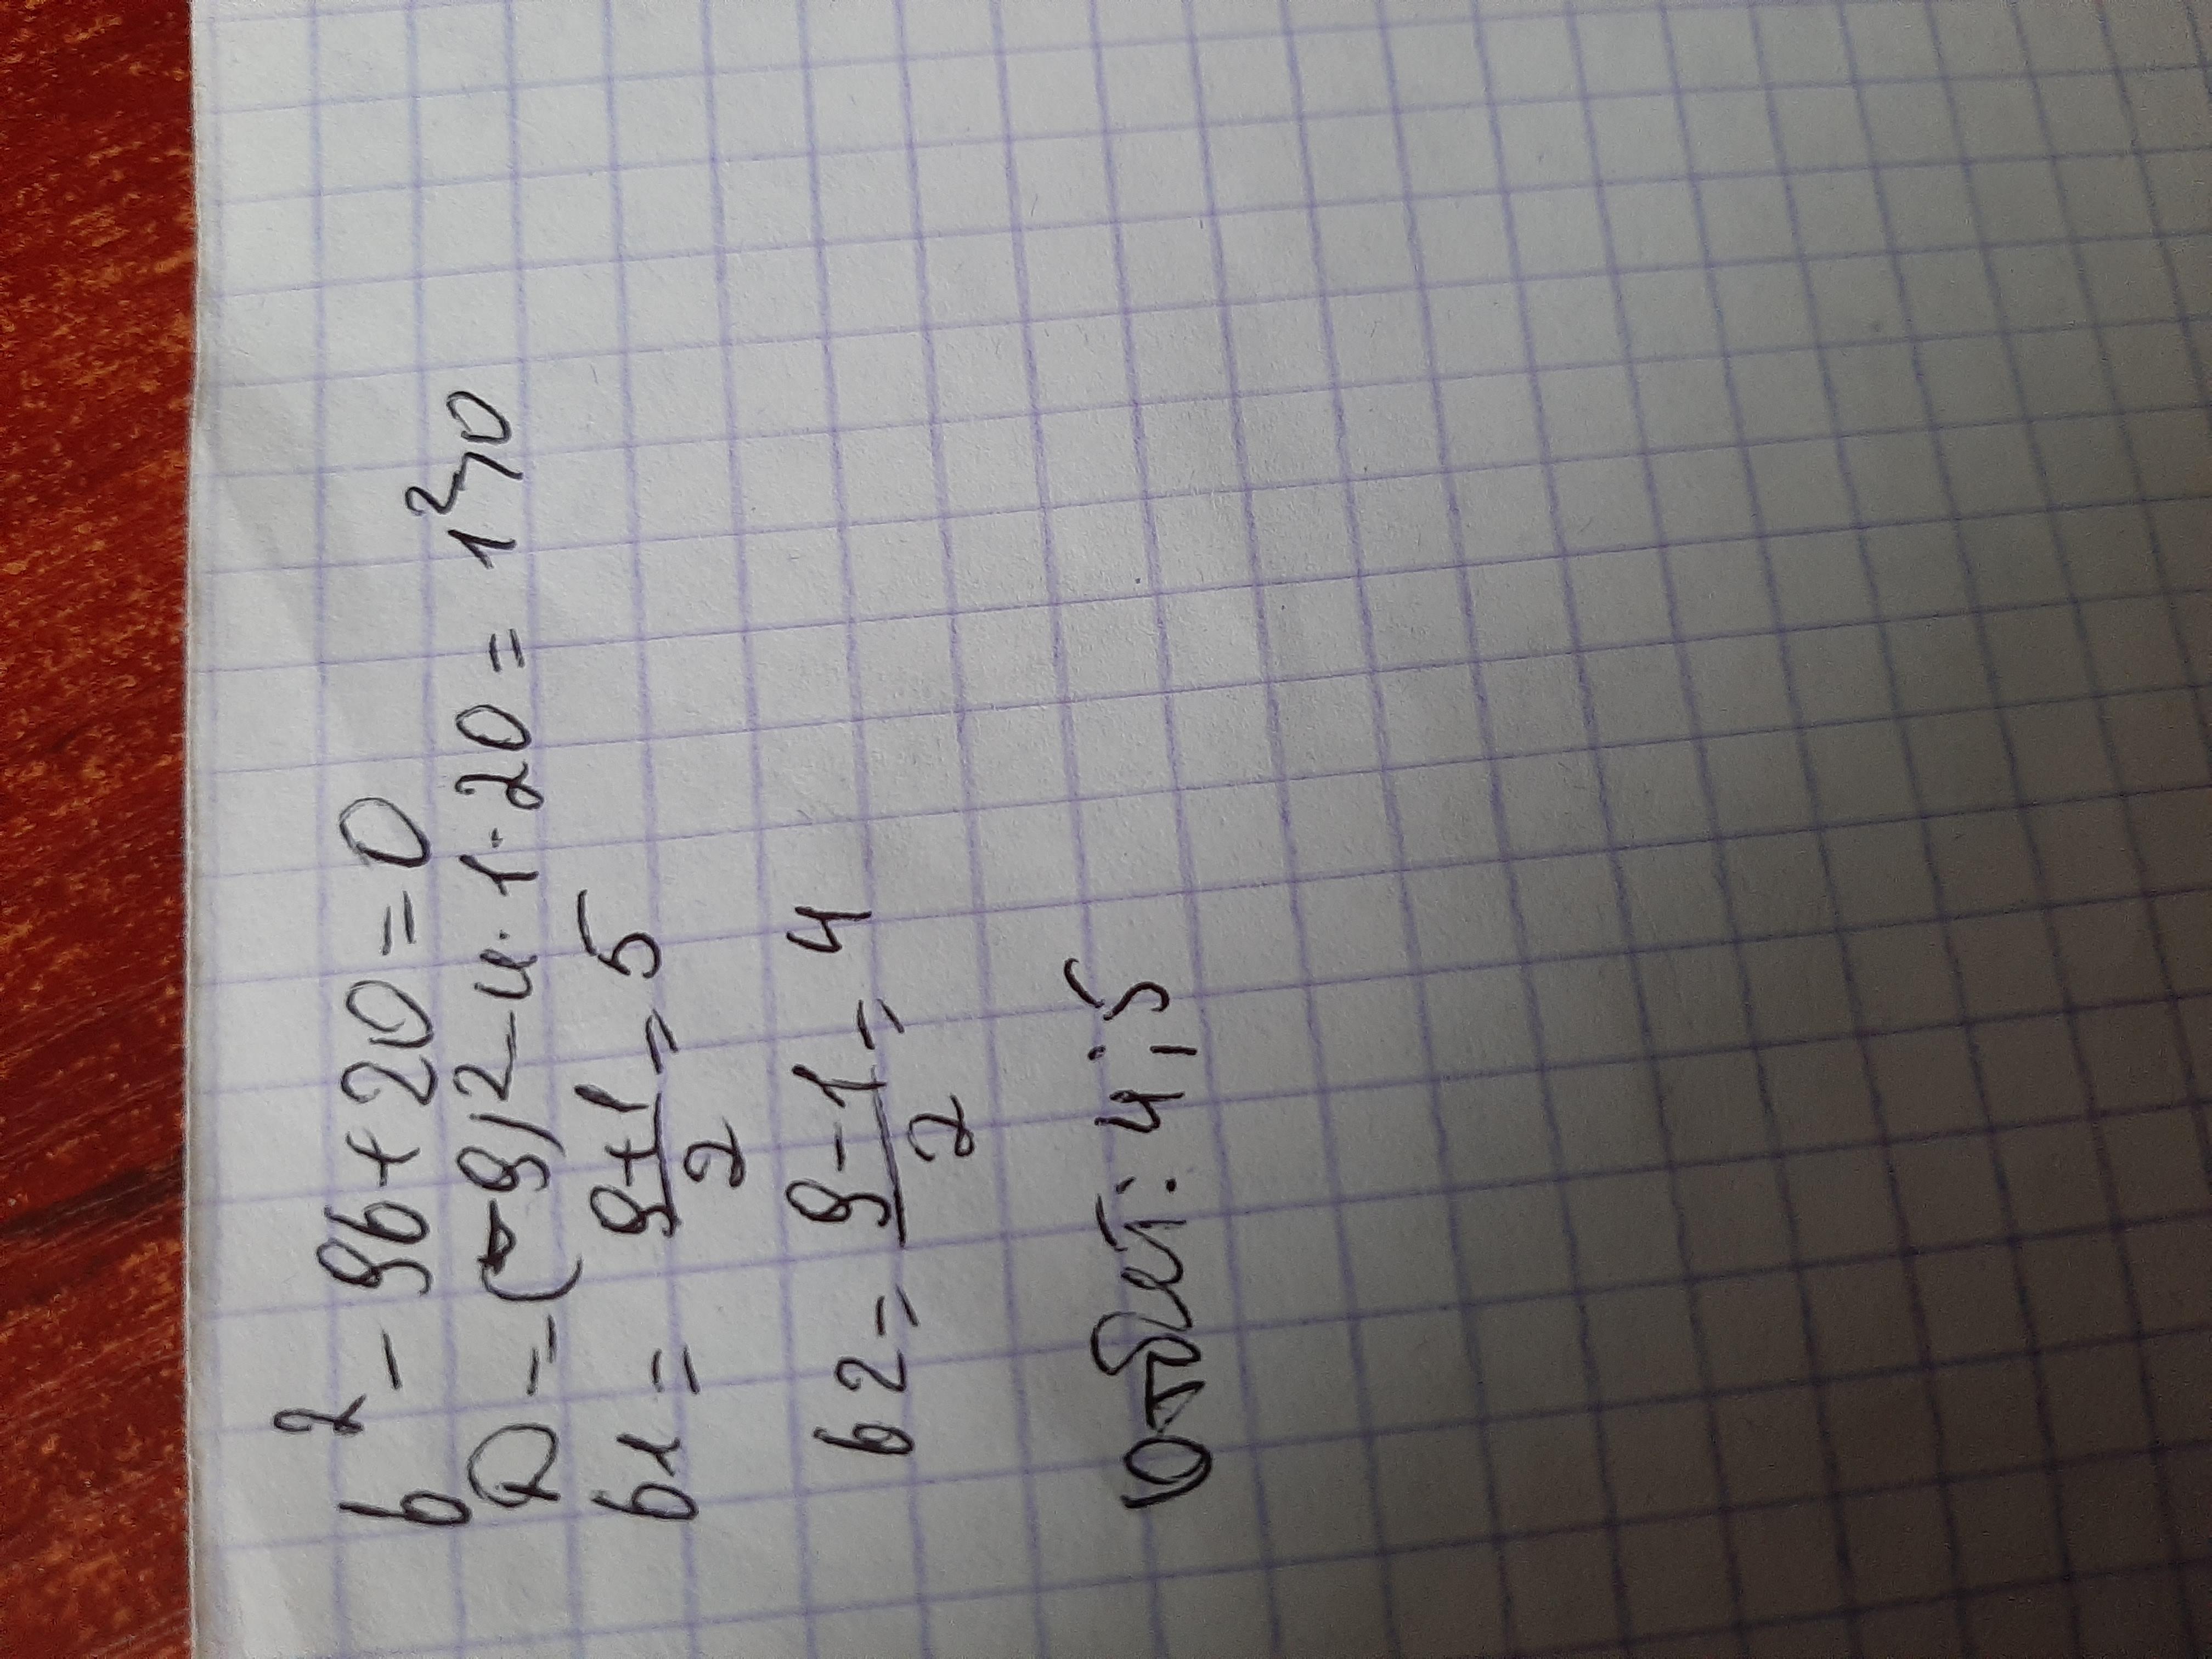 b² - 9b + 20 = 0
D = (-9)² - 4·1·20 = 1² > 0
b1 = (9+1)/2 = 5
b2 = (9-1)/2 = 4
ответ: 4; 5